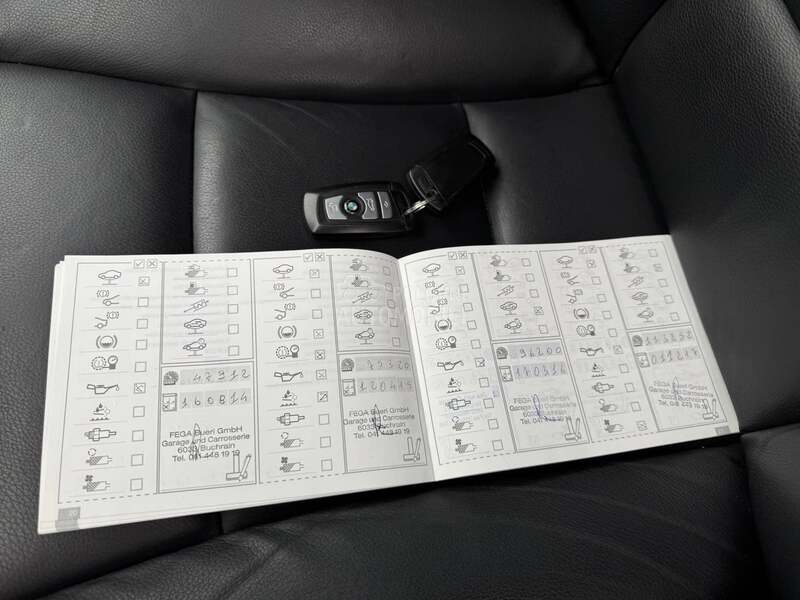 47912
160814
FEGA Bueri GmbH
Garage und Carrosserie
6033 Buchrain
Tel. 041 448 19 19
120415
FEGA Bueri GmbH
Garage und Carrosserie
6033 Buchrain
Tel. 041 448 19 19
96200
170316
FEGA Bueri GmbH
Garage und Carrosserie
6033 Buchrain
Tel. 041 448 19 19
FEGA Bueri GmbH
Garage und Carrosserie
6033 Buchrain
Tel. 041 448 19 19